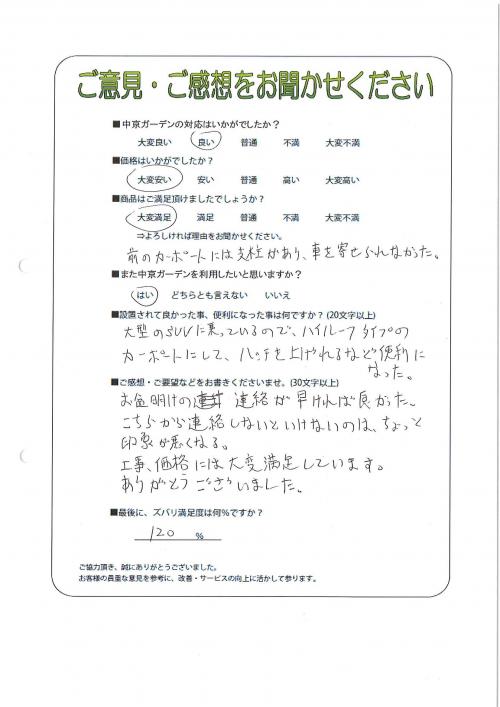 ご意見・ご感想をお聞かせください
■中京ガーデンの対応はいかがでしたか？
大変良い 良い 普通 不満 大変不満
■価格はいかがでしたか？
大変安い 安い 普通 高い 大変高い
■商品はご満足頂けましたでしょうか？
大変満足 満足 普通 不満 大変不満
⇒よろしければ理由をお聞かせください。
前のカーポートには支柱があり、車を寄せられなかった。
■また中京ガーデンを利用したいと思いますか？
はい どちらとも言えない いいえ
■設置されて良かった事、便利になった事は何ですか？(20文字以上)
大型のSUVに乗っているので、ハイルーフタイプの
カーポートにして、ハッチを上げられるなど便利に
なった。
■ご感想・ご要望などをお書きくださいませ。(30文字以上)
お盆明けの 連絡が早ければ良かった。
こちらから連絡しないといけないのは、ちょっと
印象が悪くなる。
工事、価格には大変満足しています。
ありがとうございました。
■最後に、ズバリ満足度は何%ですか？
120 %
ご協力頂き、誠にありがとうございました。
お客様の貴重な意見を参考に、改善・サービスの向上に活かして参ります。